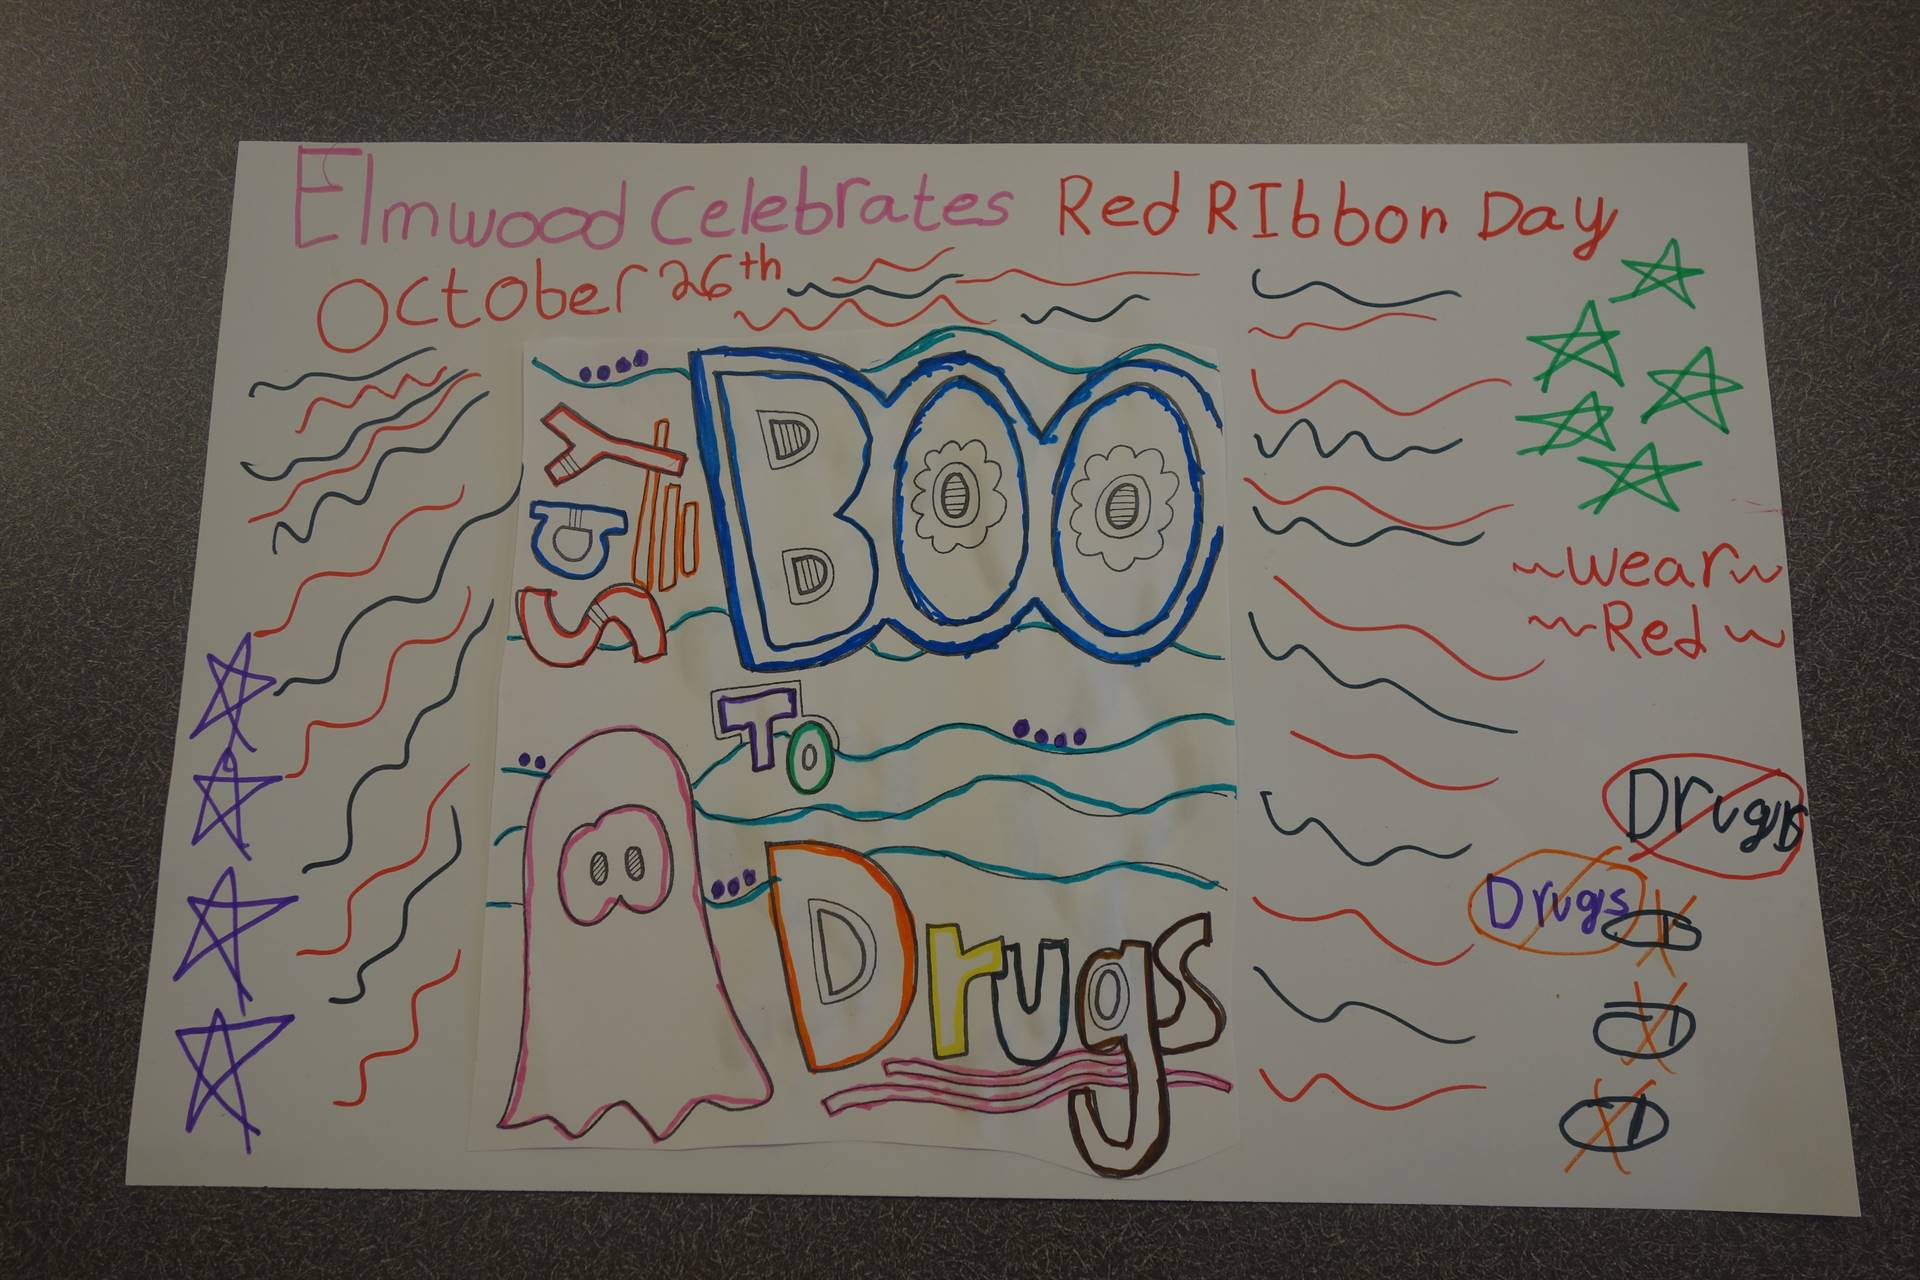 Elmwood Celebrates Red RIbbon Day
October 26th
Say BOO
To
Drugs
~wear~
~Red~
Drugs
Drugs